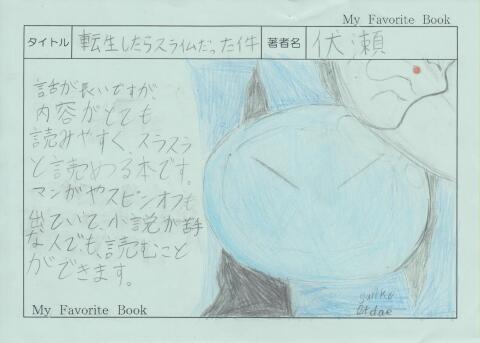 My Favorite Book
タイトル 転生したらスライムだった件 著者名 伏瀬
話が長いですが、
内容がとても
読みやすく、スラスラ
と読めつる本です。
マンガやスピンオフも
出ていて、小説が苦手
な人でも、読むこと
ができます。
My Favorite Book